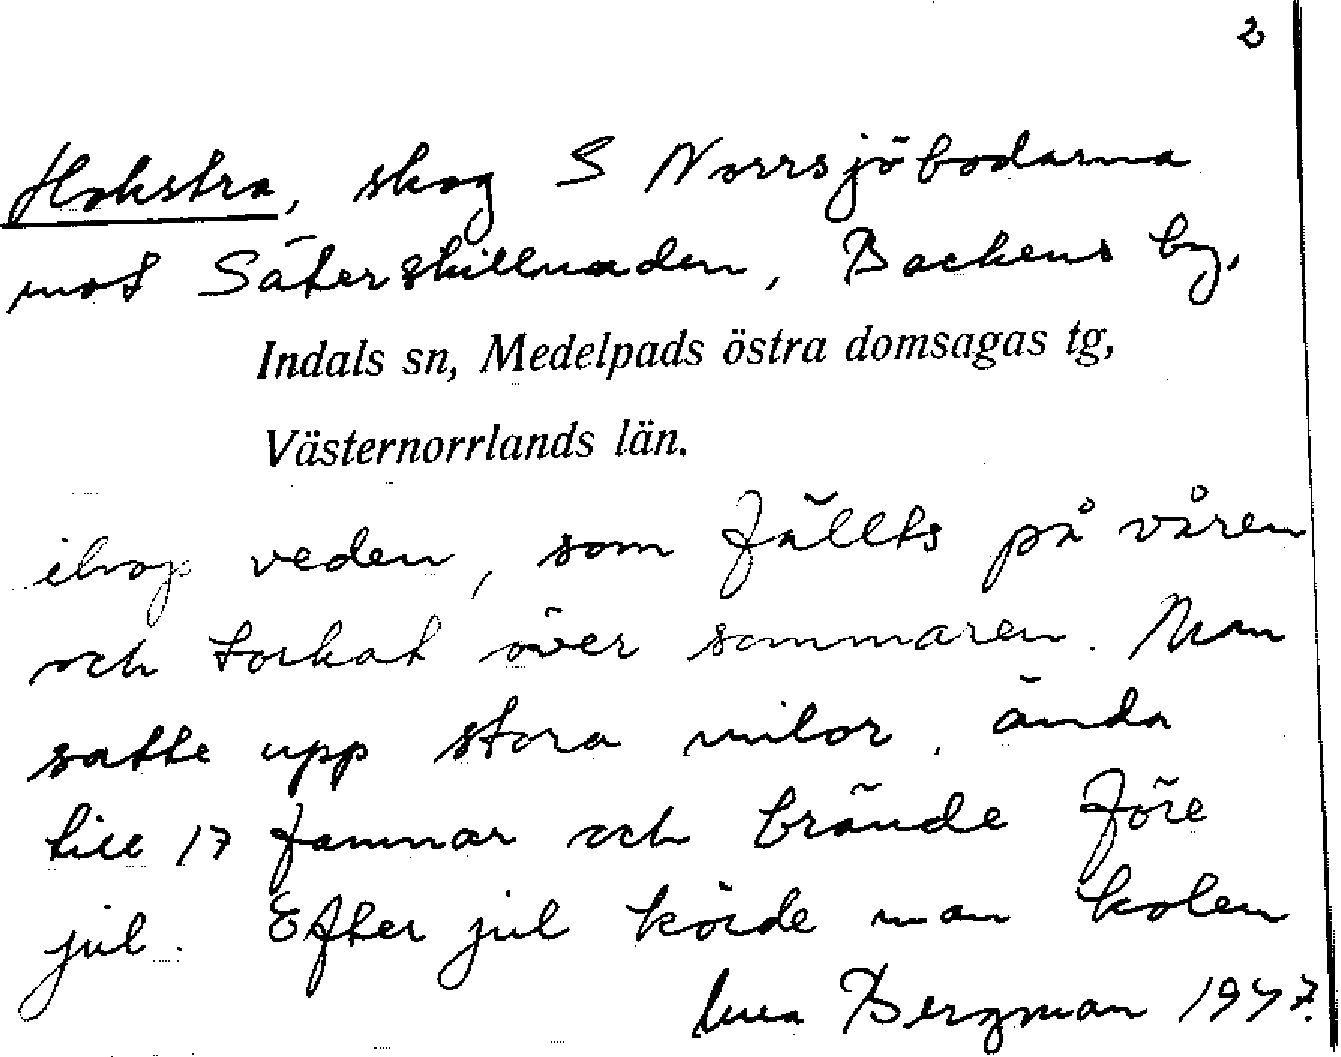 2
Hokstra, skog S Norrsjöbodarna
mot Säterskillnaden, Backens by,
Indals sn, Medelpads östra domsagas tg,
Västernorrlands län.
ihop veden, som fällts på våren
och torkat över sommaren. Man
satte upp stora milor, ända
till 17 famnar och brände före
jul. Efter jul körde man kolen
Bergman 1947.